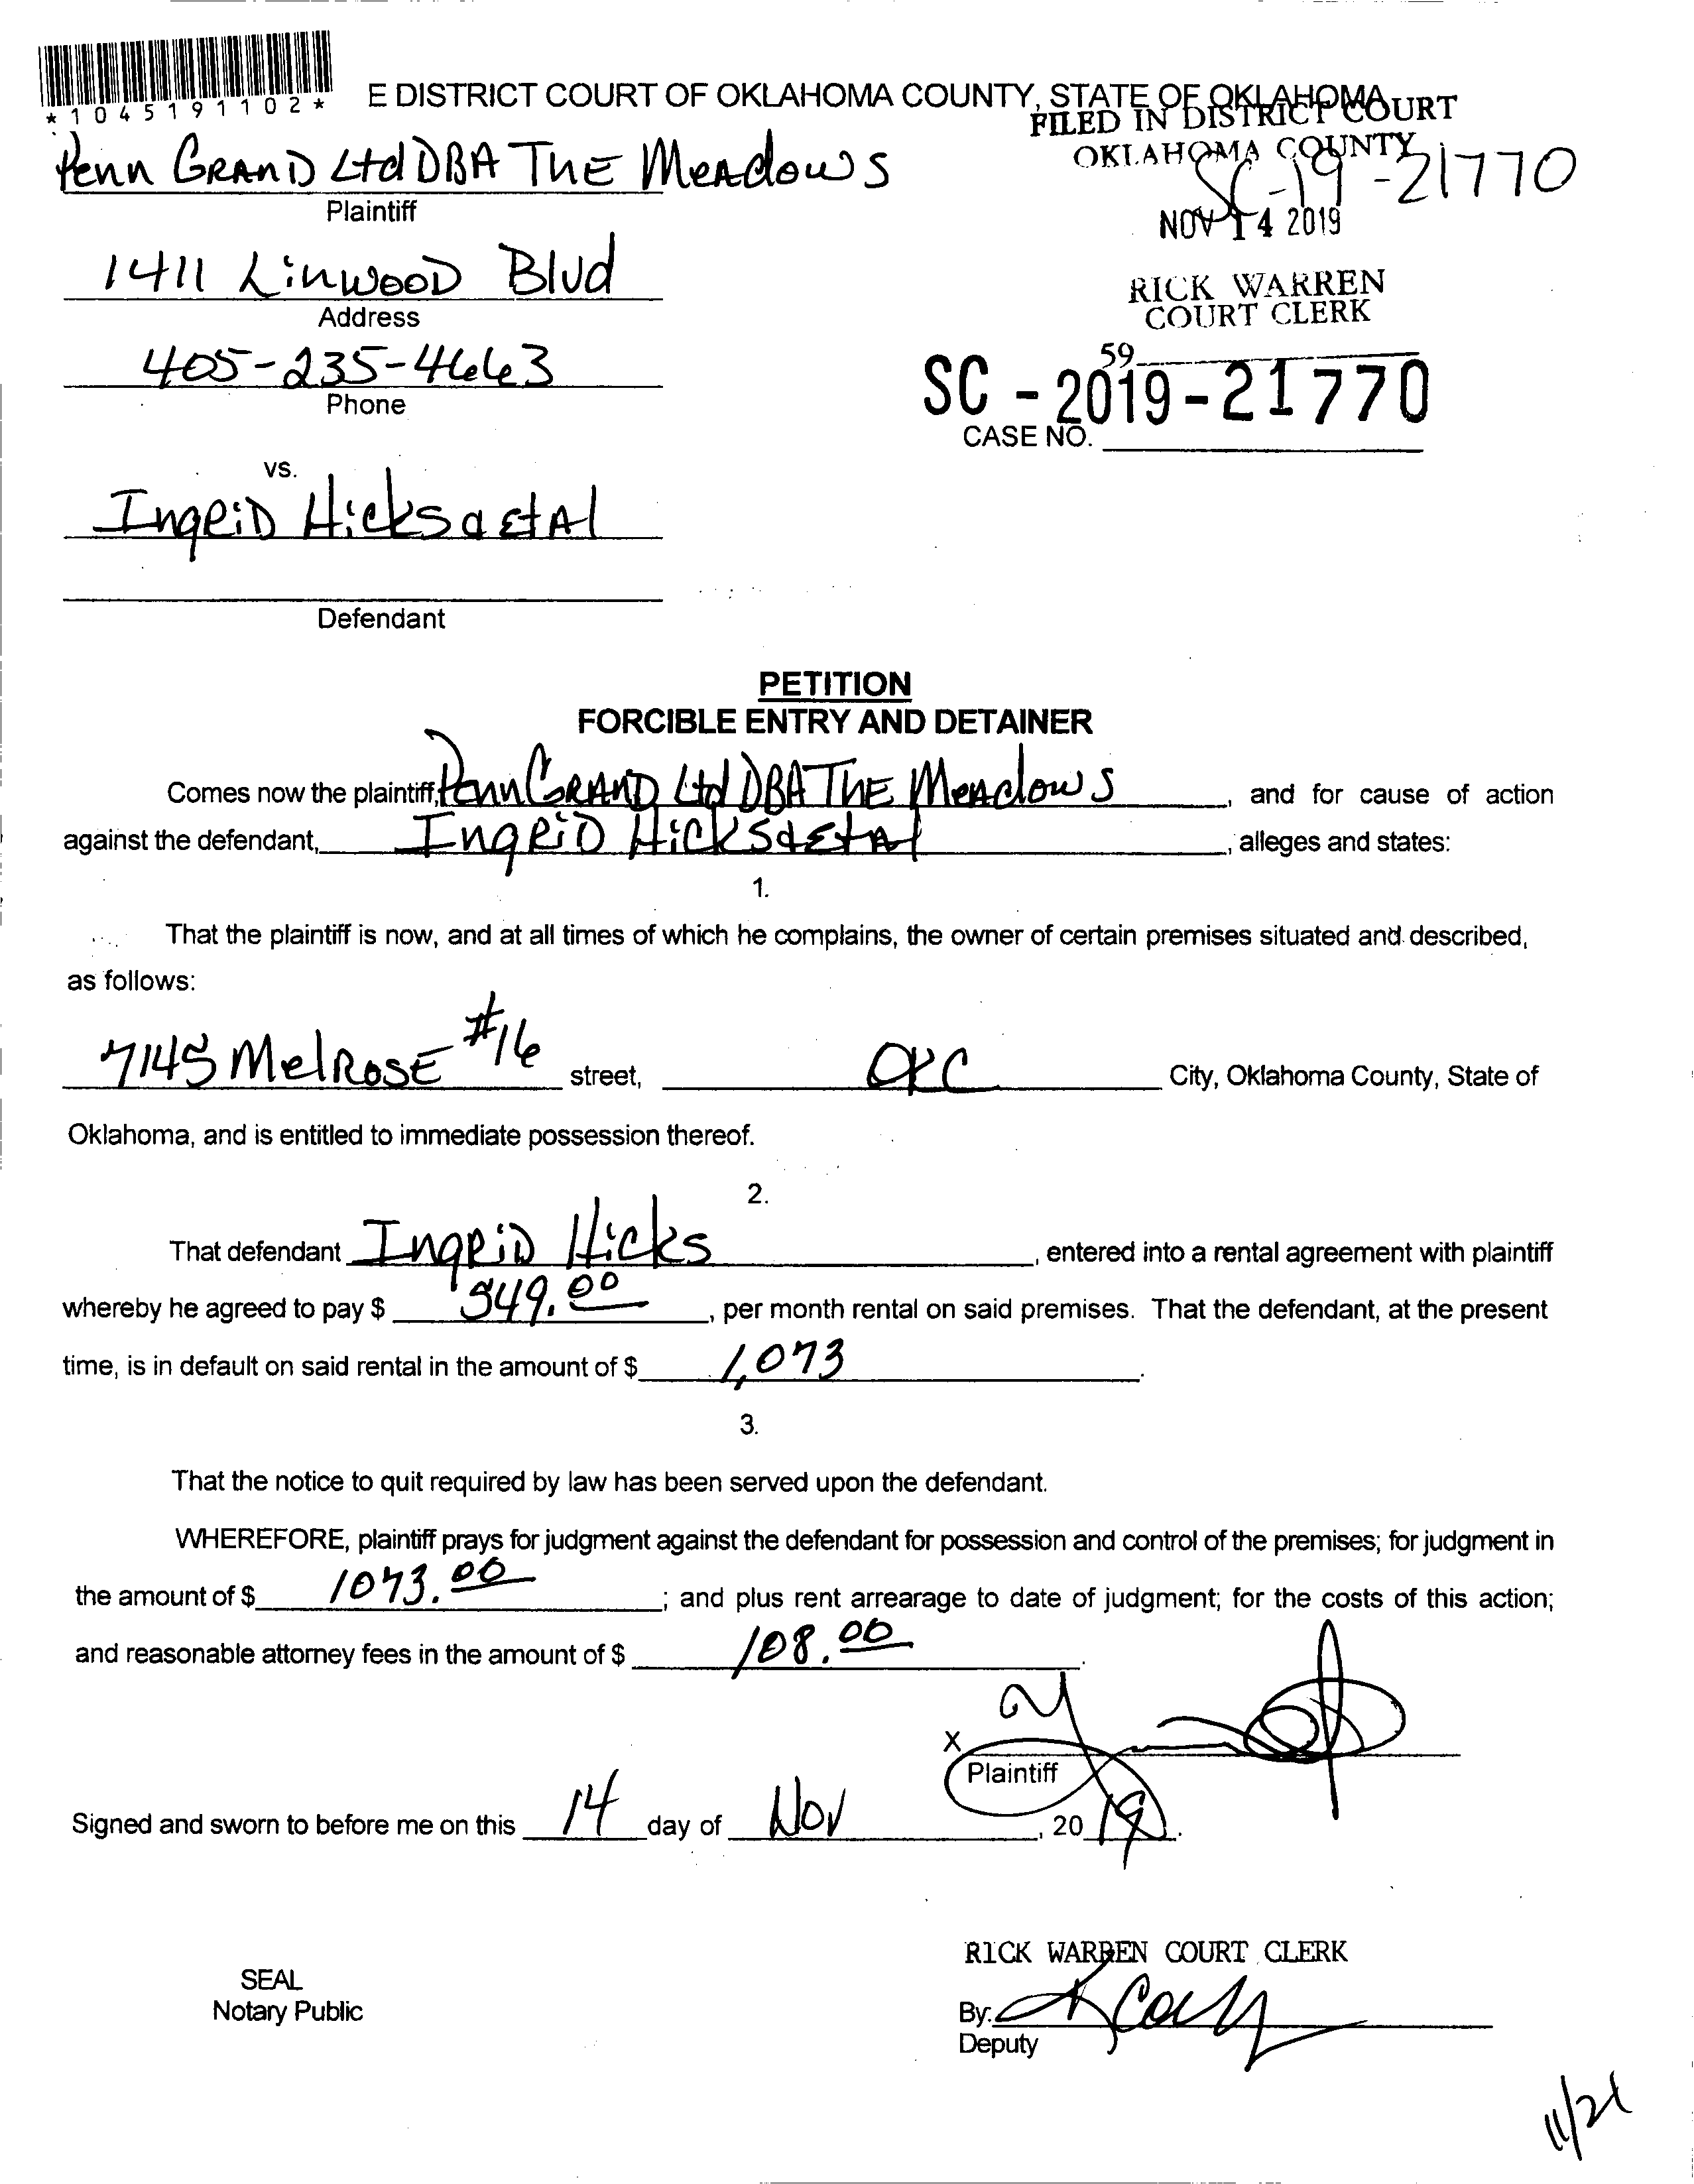 *1045191102*
E DISTRICT COURT OF OKLAHOMA COUNTY, STATE OF OKLAHOMA
FILED IN DISTRICT COURT
OKLAHOMA COUNTY
Penn GRAND Ltd DBA THE MEAdows
SC-19-21770
Plaintiff
NOV 14 2019
1411 LinwooD Blvd
RICK WARREN
COURT CLERK
Address
405-235-4663
59
Phone
SC - 2019 - 21770
CASE NO.
vs.
IngRiD Hicks a EtAl
Defendant
PETITION
FORCIBLE ENTRY AND DETAINER
Comes now the plaintiff, Penn GRAND Ltd DBA THE MEAdows, and for cause of action
against the defendant, IngRiD Hicks a EtAl, alleges and states:
1.
That the plaintiff is now, and at all times of which he complains, the owner of certain premises situated and described,
as follows:
7145 MelRosE #16 street, OKC City, Oklahoma County, State of
Oklahoma, and is entitled to immediate possession thereof.
2.
That defendant IngRiD Hicks, entered into a rental agreement with plaintiff
whereby he agreed to pay $ 549.00, per month rental on said premises. That the defendant, at the present
time, is in default on said rental in the amount of $ 1,073.
3.
That the notice to quit required by law has been served upon the defendant.
WHEREFORE, plaintiff prays for judgment against the defendant for possession and control of the premises; for judgment in
the amount of $ 1073.00; and plus rent arrearage to date of judgment; for the costs of this action;
and reasonable attorney fees in the amount of $ 108.00.
X
Plaintiff
Signed and sworn to before me on this 14 day of Nov, 2019.
RICK WARREN COURT CLERK
SEAL
Notary Public
By:
Deputy
11/21